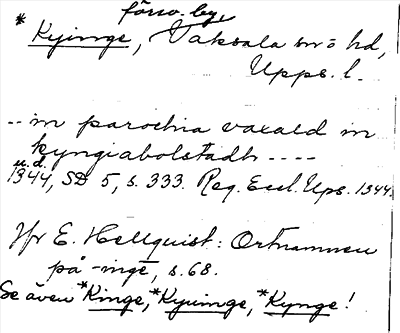 försv. by,
*Kyinge, Vaksala sn o hd,
Upps. l.
-- in parochia vaxald in
kyngiabolstadh ----
u.d.
1344, SD 5, s. 333. Reg. Eccl. Ups. 1344.
Jfr E. Hellquist: Ortnamnen
på -inge, s. 68.
Se även *Kinge, *Kyuinge, *Kynge!